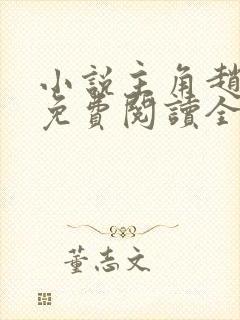 小說主角趙
免費閱讀全
董志文